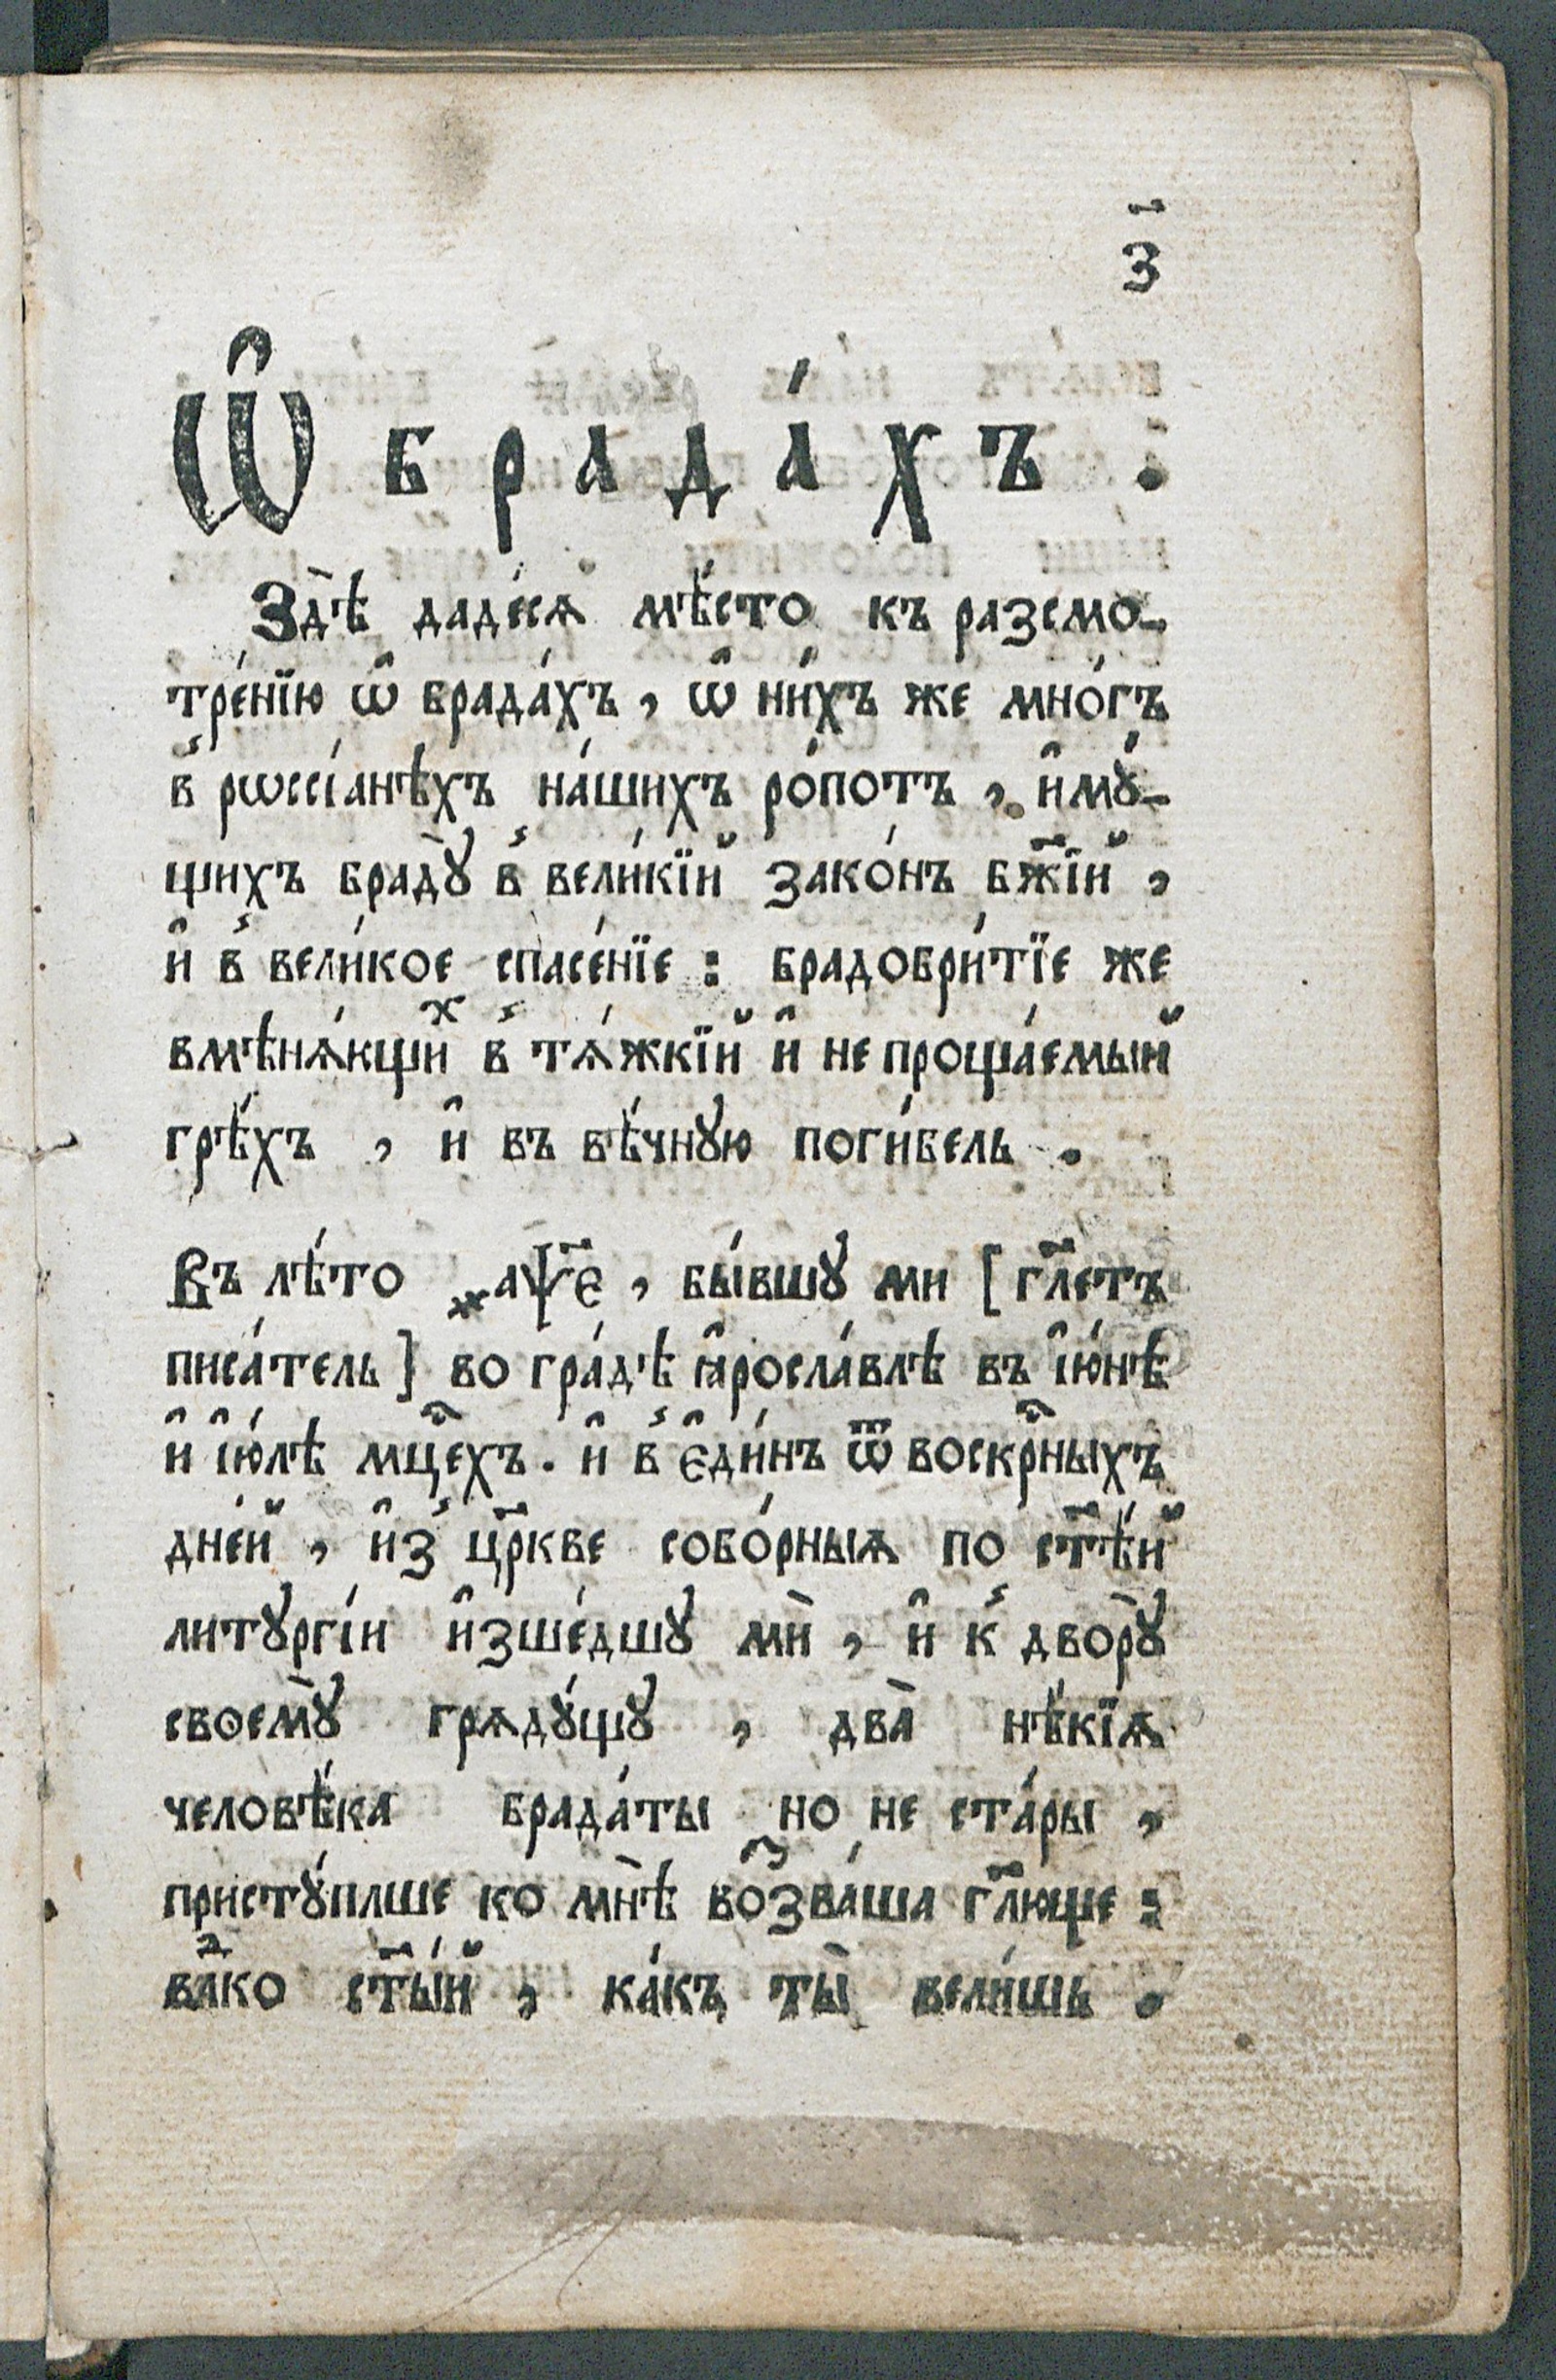 З҃
Ѽ брада́хъ .
Здѣ̀ даде́сѧ мѣ́сто къ разсмо-
тре́нїю ѽ брада́хъ , ѽ ни́хъ же мно́гъ
в̾ рѡссі́анѣхъ на́шихъ ро́потъ , и҆мꙋ́-
щихъ брадꙋ̀ в̾ вели́кїй зако́нъ бж҃їй ,
и҆ в̾ вели́кое спасе́нїе : брадобри́тїе же
вмѣнѧ́ющиⷯ в̾ тѧ́жкїй и҆ не проща́емый
грѣ́хъ , и҆ въ вѣ́чнꙋю поги́бель .
Въ лѣ́то ҂аѱ҃є , бы́вшꙋ ми [ гл҃етъ
писа́тель ] во гра́дѣ ꙗ҆росла́влѣ въ і҆ю́нѣ
и҆ і҆ю́лѣ мцⷭ҇ехъ . и҆ в̾ є҆ди́нъ ѿ воскрⷭ҇ныхъ
дне́й , и҆з̾ цр҃кве собо́рныѧ по ст҃ѣ́й
литꙋргі́и и҆зше́дшꙋ мѝ , и҆ к̾ дворꙋ̀
своемꙋ̀ грѧдꙋ́щꙋ , два̀ нѣ́кїѧ
человѣ́ка брада́ты но не ста́ры ,
пристꙋ́пльше ко мнѣ̀ воз̾зва́ша гл҃юще :
влⷣко ст҃ы́й , ка́къ ты̀ вели́шь .